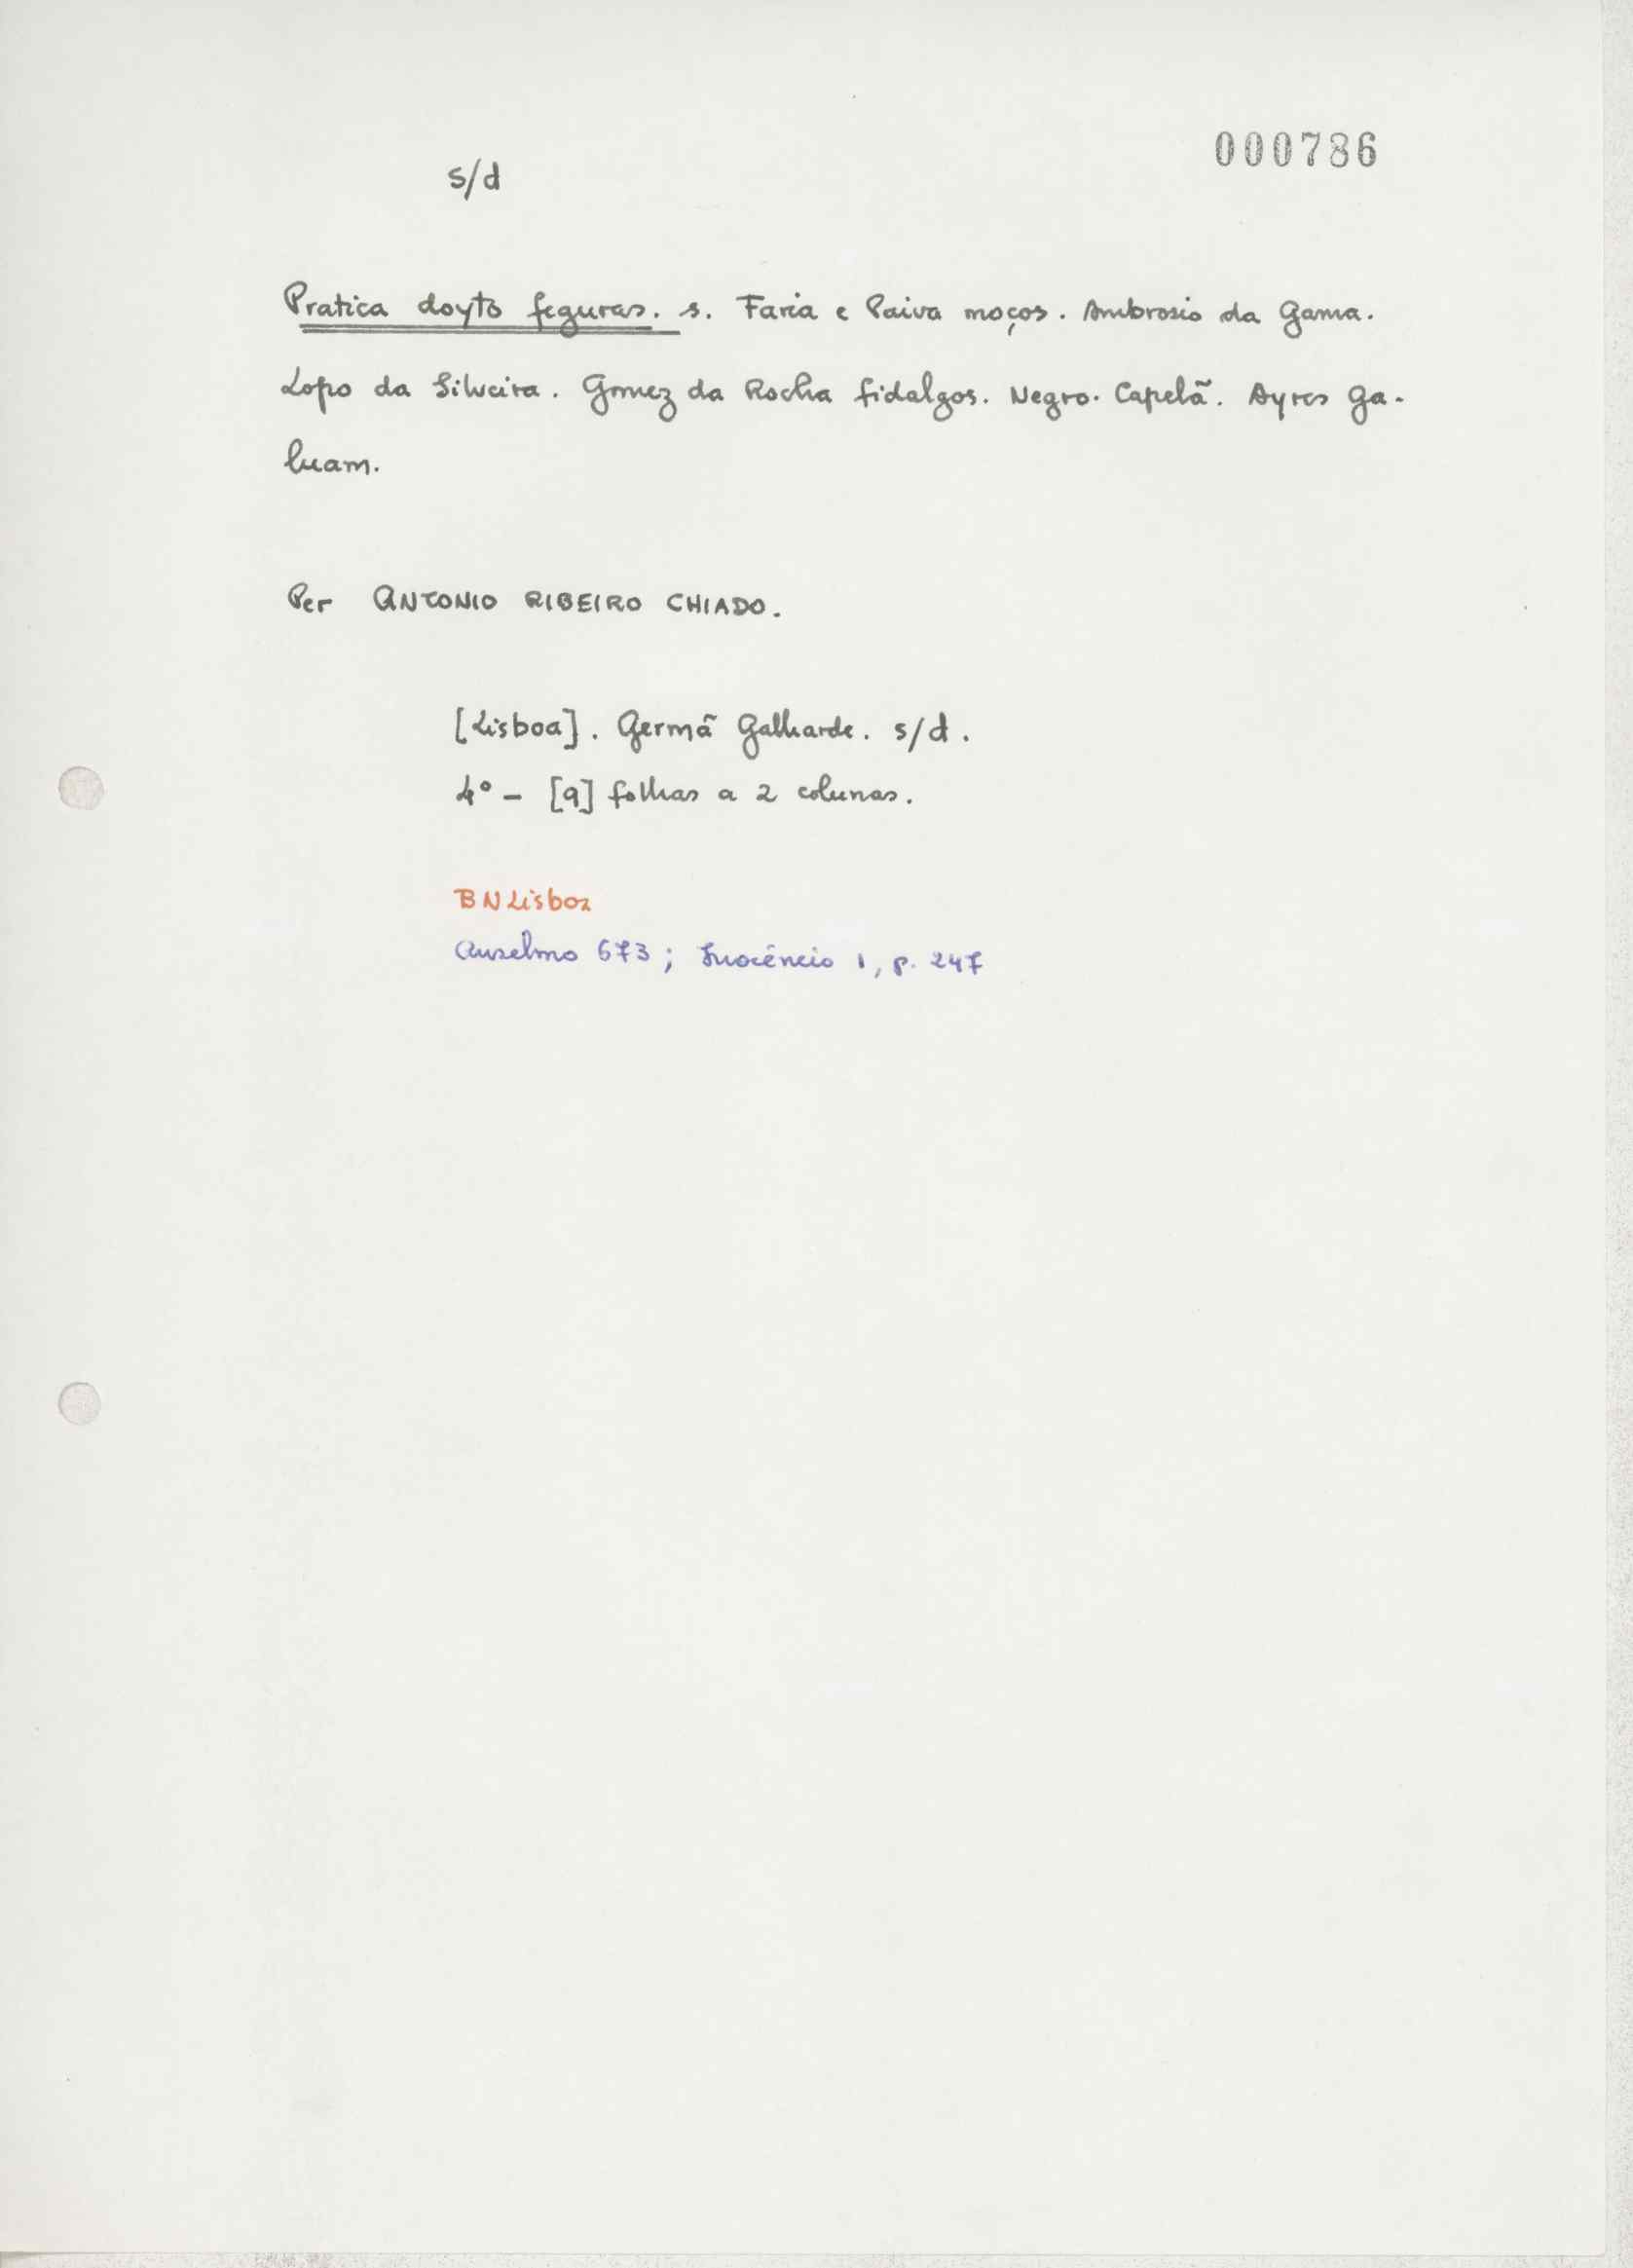 000786
s/d
Pratica doyto feguras. s. Faria e Paiva moços. Ambrosio da Gama.
Lopo da Silveira. Gomez da Rocha fidalgos. Negro. Capelã. Ayres Ga-
luam.
Per ANTONIO RIBEIRO CHIADO.
[Lisboa]. Germã Galharde. s/d.
4º - [9] folhas a 2 colunas.
BNLisboa
Anselmo 673; Inocêncio 1, p. 247